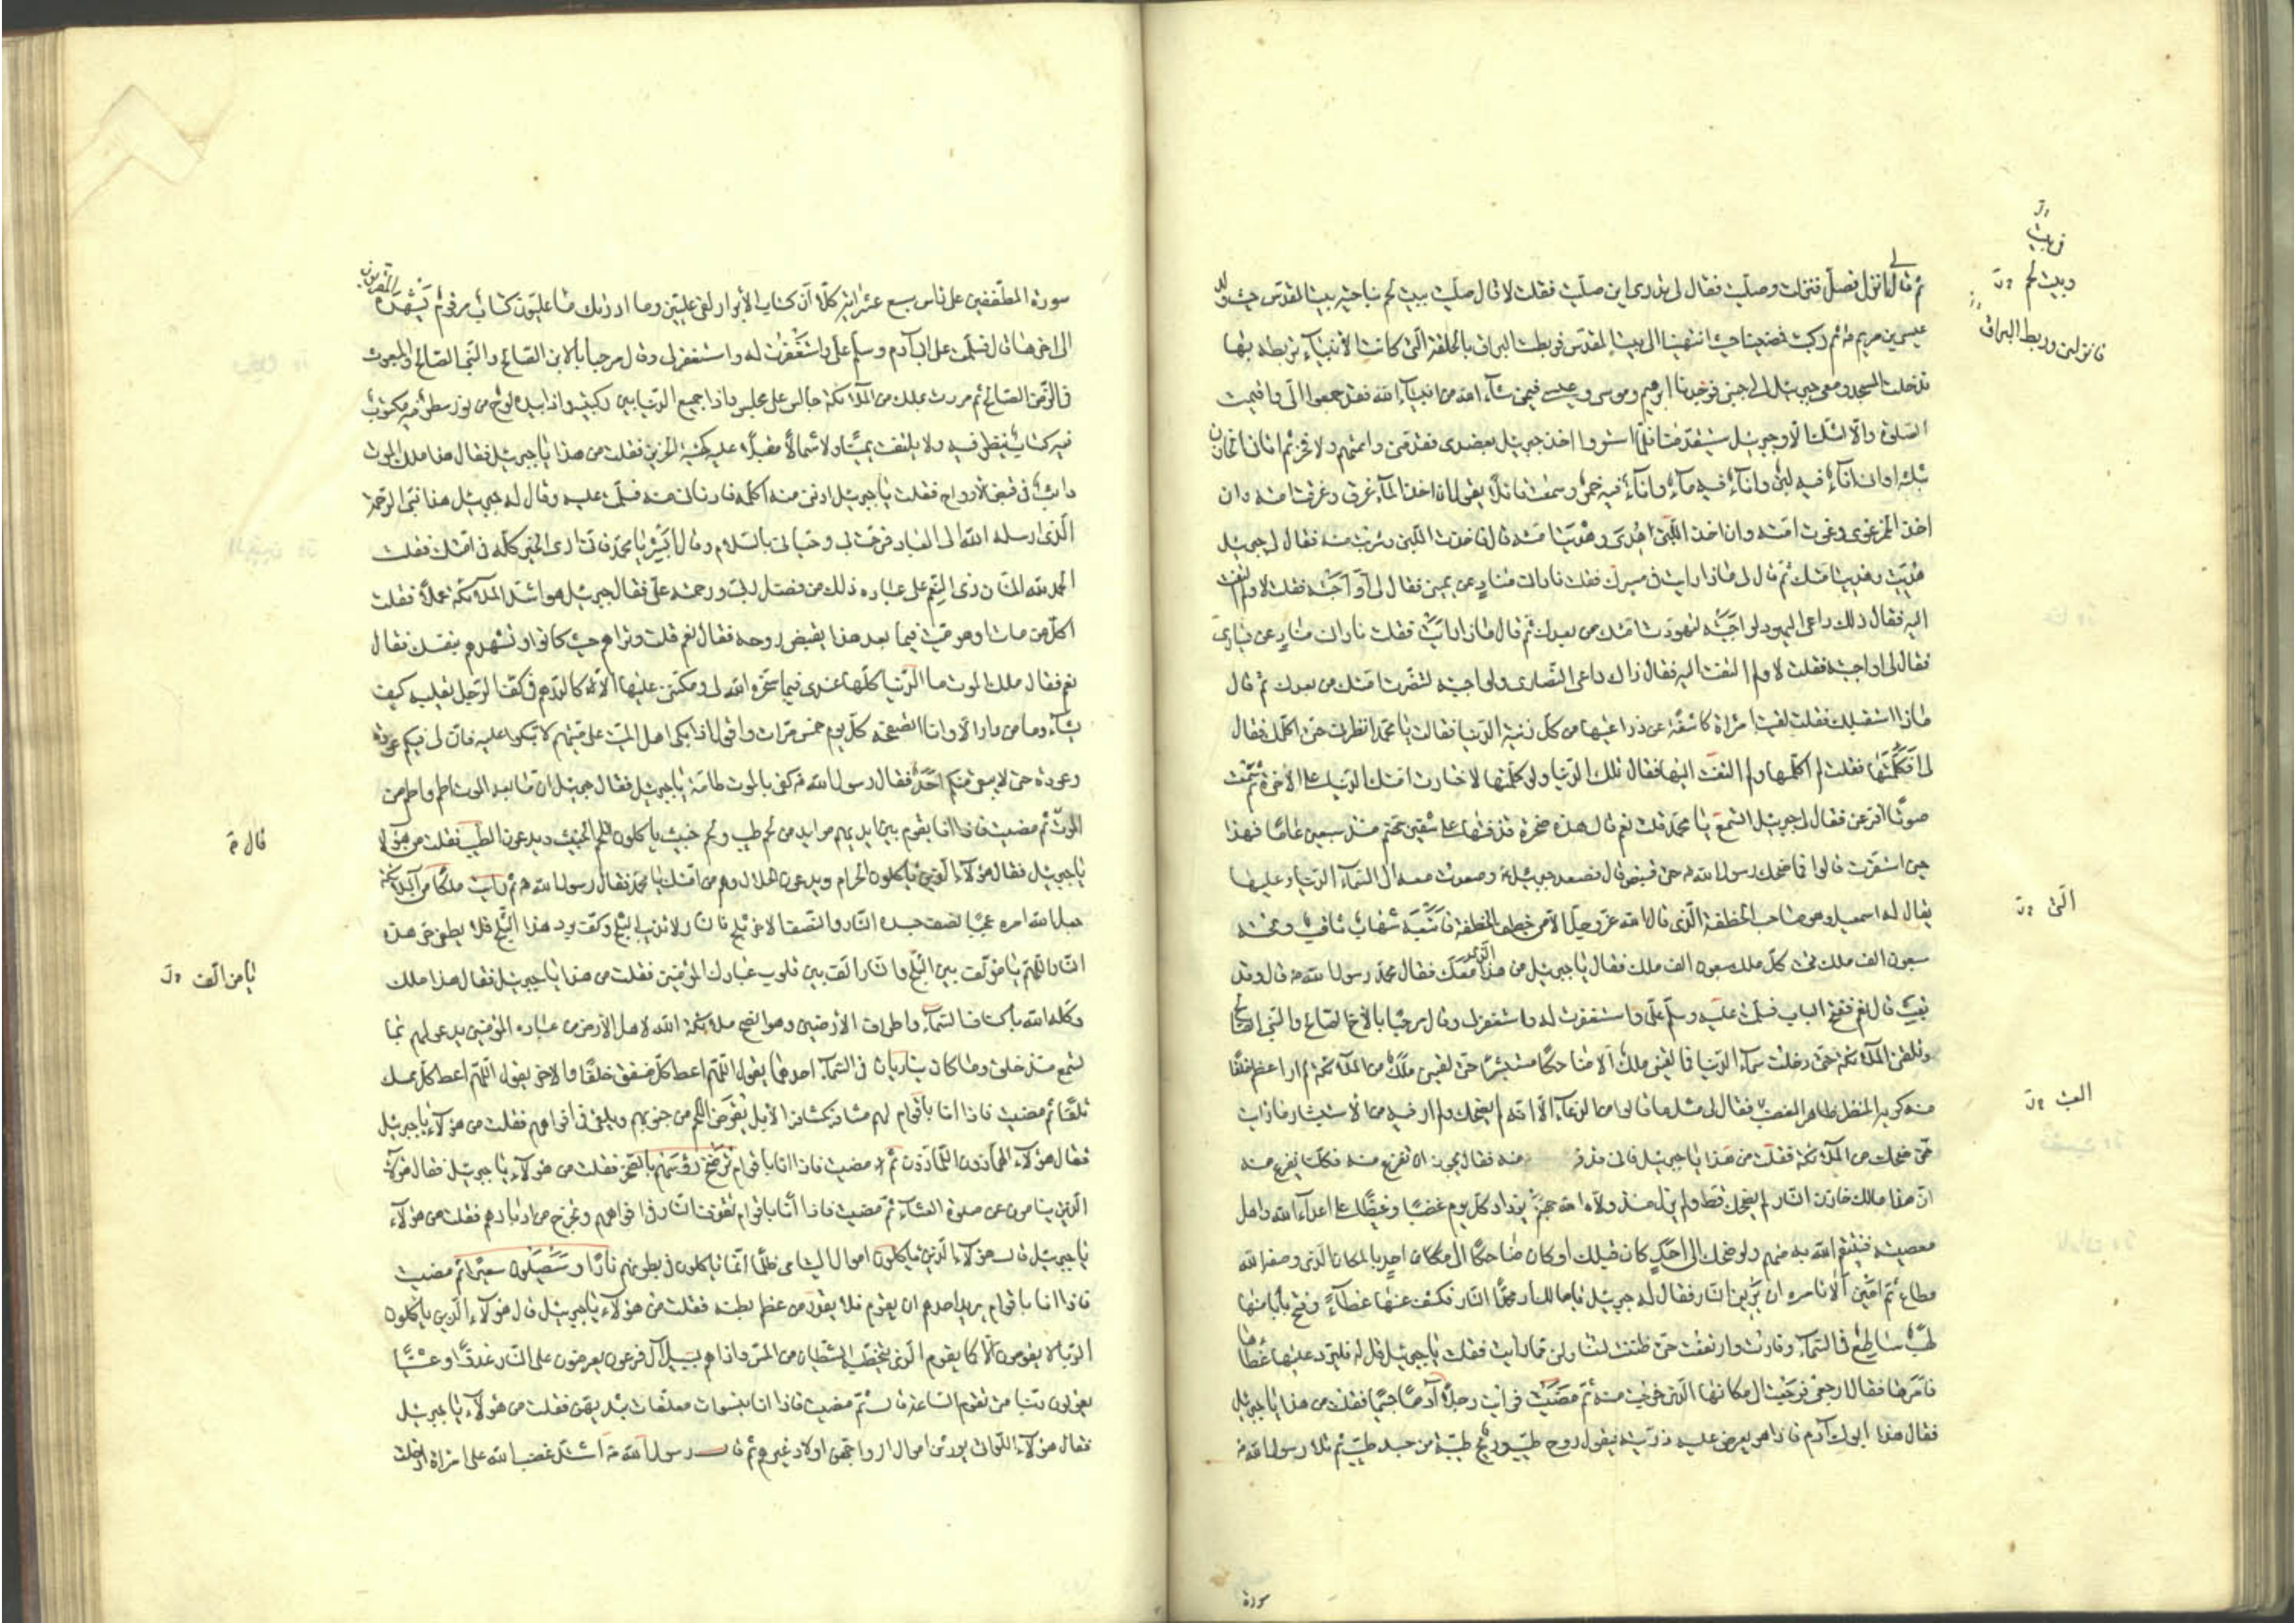 ثم قال لي انزل فصلّ فنزلت وصلّيت فقال لي تدري اين صلّيت فقلت لا قال صلّيت ببيت لحم بناحية بيت المقدس حيث ولد
عيسى بن مريم ثم ركبت فمضينا حتى انتهينا الى بيت المقدس فربطت البراق بالحلقة التي كانت الأنبياء تربط بها
فدخلت المسجد ومعي جبرئيل الى جنبي فوجدنا ابرهيم وموسى وعيسى فيمن شاء الله من انبياء الله فقد جمعوا الي واقيمت
الصلوة ولا اشك الا وجبرئيل سيتقدّمنا فلمّا استووا اخذ جبرئيل بعضدي فقدّمني واممتهم ولا فخر ثم اتاني الخازن
بثلثة اوان اناء فيه لبن واناء فيه ماء واناء فيه خمر وسمعت قائلا يقول ان اخذ الماء غرق وغرقت امته وان
اخذ الخمر غوى وغوت امته وان اخذ اللبن هدي وهديت امته قال فاخذت اللبن وشربت منه فقال لي جبرئيل
هديت وهديت امتك ثم قال لي ماذا رأيت في مسيرك فقلت ناداني مناد عن يميني فقال لي أوأجبته فقلت لا ولم التفت
اليه فقال ذلك داعي اليهود لو اجبته لتهودت امتك من بعدك ثم قال ماذا رأيت فقلت ناداني مناد عن يساري
فقال لي اواجبته فقلت لا ولم التفت اليه فقال ذاك داعي النصارى ولو اجبته لتنصّرت امتك من بعدك ثم قال
ماذا استقبلك فقلت لقيت امراة كاشفة عن ذراعيها من كل زينة الدنيا فقالت يا محمد انظرني حتى اكلمك فقال
لي أفكلّمتها فقلت لم اكلّمها ولم التفت اليها فقال تلك الدنيا ولو كلّمتها لاختارت امتك الدنيا على الآخرة ثم سمعت
صوتا افزعني فقال لي جبرئيل اتسمع يا محمد قلت نعم قال هذه صخرة قذفتها على شفير جهنم منذ سبعين عاما فهذا
حين استقرت قالوا فما ضحك رسول الله حتى قبض قال فصعد جبرئيل وصعدت معه الى السماء الدنيا وعليها
يقال له اسمعيل وهو صاحب الخطفة الذي قال الله عز وجل الا من خطف الخطفة فأتبعه شهاب ثاقب وتحته
سبعون الف ملك تحت كل ملك سبعون الف ملك فقال يا جبرئيل من هذا الذي معك فقال محمد رسول الله قال وقد
بعث قال نعم ففتح الباب فسلّمت عليه وسلّم عليّ واستغفرت له واستغفر لي وقال مرحبا بالأخ الصالح والنبي الصالح
وتلقتني الملائكة حتى دخلت سماء الدنيا فما لقيني ملك الا ضاحكا مستبشرا حتى لقيني ملك من الملائكة لم ار اعظم خلقا
منه كريه المنظر ظاهر الغضب فقال لي مثل ما قالوا من الدعاء الا انه لم يضحك ولم ار فيه من الاستبشار ما رأيت
ممن ضحك من الملائكة فقلت من هذا يا جبرئيل فاني قد فزعت منه فقال يجوز ان تفزع منه فكلنا يفزع منه
ان هذا مالك خازن النار لم يضحك قط ولم يزل منذ ولاه الله جهنم يزداد كل يوم غضبا وغيظا على اعداء الله واهل
معصيته فينتقم الله به منهم ولو ضحك الى احد كان قبلك او كان ضاحكا الى احد بالمكان الذي وصفه الله
مطاع ثم امين ألا تأمره ان يريني النار فقال له جبرئيل يا مالك أر محمدا النار فكشف عنها غطاء وفتح بابا منها
لهب ساطع في السماء وفارت وارتفعت حتى ظننت ليتناولني مما رأيت فقلت يا جبرئيل قل له فليرد عليها غطاءها
فامرها فقال ارجعي فرجعت الى مكانها الذي خرجت منه ثم مضيت فرأيت رجلا آدما جسيما فقلت من هذا يا جبرئيل
فقال هذا ابوك آدم فاذا هو يعرض عليه ذريته فيقول روح طيب وريح طيبة من جسد طيب ثم تلا رسول الله
سورة
في بيت
وبيت لحم
فانزلني وربط البراق
التي
الغضب
سورة المطففين على رأس سبع عشر اية كلا ان كتاب الأبرار لفي عليين وما ادريك ما عليون كتاب مرقوم يشهده المقربون
الى اخرها قال فسلّمت على ابي آدم وسلّم عليّ واستغفرت له واستغفر لي وقال مرحبا بالابن الصالح والنبي الصالح والمبعوث
في الزمن الصالح ثم مررت بملك من الملائكة جالس على مجلس واذا جميع الدنيا بين ركبتيه واذا بيده لوح من نور سطر فيه مكتوب
فيه كتاب ينظر فيه ولا يلتفت يمينا ولا شمالا مقبلا عليه كهيئة الحزين فقلت من هذا يا جبرئيل فقال هذا ملك الموت
دائب في قبض الأرواح فقلت يا جبرئيل ادنني منه اكلّمه فادناني منه فسلّمت عليه وقال له جبرئيل هذا نبي الرحمة
الذي ارسله الله الى العباد فرحّب بي وحياني بالسلام وقال ابشر يا محمد فاني ارى الخير كله في امتك فقلت
الحمد لله المنان ذي النعم على عباده ذلك من فضل ربي ورحمته علي فقال جبرئيل هو اشد الملائكة عملا فقلت
اكل من مات او هو ميت فيما بعد هذا يقبض روحه فقال نعم قلت وتراهم حيث كانوا وتشهدهم بنفسك فقال
نعم فقال ملك الموت ما الدنيا كلها عندي فيما سخّره الله لي ومكنني عليها الا كالدرهم في كف الرجل يقلبه كيف
يشاء وما من دار الا وانا اتصفحه كل يوم خمس مرات واقول اذا بكى اهل الميت على ميتهم لا تبكوا عليه فان لي فيكم عودة
وعودة حتى لا يبقى منكم احد فقال رسول الله كفى بالموت طامة يا جبرئيل فقال جبرئيل ان ما بعد الموت اطم واطم من
الموت ثم مضيت فاذا انا بقوم بين ايديهم موائد من لحم طيب ولحم خبيث يأكلون اللحم الخبيث ويدعون الطيب فقلت من هؤلاء
يا جبرئيل فقال هؤلاء الذين ياكلون الحرام ويدعون الحلال وهم من امتك يا محمد فقال رسول الله ثم رأيت ملكا من الملائكة
جعل الله امره عجيبا نصف جسده النار والنصف الآخر ثلج فلا النار تذيب الثلج ولا الثلج يطفئ
النار اللهم يا مؤلف بين الثلج والنار الّف بين قلوب عبادك المؤمنين فقلت من هذا يا جبرئيل فقال هذا ملك
وكله الله باكناف السماء واطراف الأرضين وهو انصح ملائكة الله لاهل الأرض من عباده المؤمنين يدعو لهم بما
تسمع منذ خلق وملكان يناديان في السماء احدهما يقول اللهم اعط كل منفق خلفا والآخر يقول اللهم اعط كل ممسك
تلفا ثم مضيت فاذا انا باقوام لهم مشافر كمشافر الأبل يقرض اللحم من جنوبهم ويلقى في افواههم فقلت من هؤلاء يا جبرئيل
فقال هؤلاء الهمازون اللمازون ثم مضيت فاذا انا باقوام ترضخ رؤسهم بالصخر فقلت من هؤلاء يا جبرئيل فقال هؤلاء
الذين ينامون عن صلوة العشاء ثم مضيت فاذا انا باقوام تقذف النار في افواههم وتخرج من ادبارهم فقلت من هؤلاء
يا جبرئيل قال هؤلاء الذين ياكلون اموال اليتامى ظلما انما ياكلون في بطونهم نارا وسيصلون سعيرا ثم مضيت
فاذا انا باقوام يريد احدهم ان يقوم فلا يقدر من عظم بطنه فقلت من هؤلاء يا جبرئيل قال هؤلاء الذين ياكلون
الربا لا يقومون الا كما يقوم الذي يتخبطه الشيطان من المس واذا هم بسبيل آل فرعون يعرضون على النار غدوا وعشيا
يقولون ربنا متى تقوم الساعة قال ثم مضيت فاذا انا بنسوان معلقات بثديهن فقلت من هؤلاء يا جبرئيل
فقال هؤلاء اللواتي يورثن اموال ازواجهن اولاد غيرهم ثم قال رسول الله اشتد غضب الله على امراة ادخلت
قال
يا من الّف